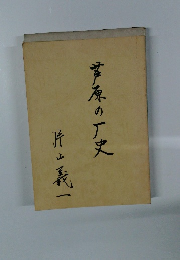 芦原の厂史
片山義一